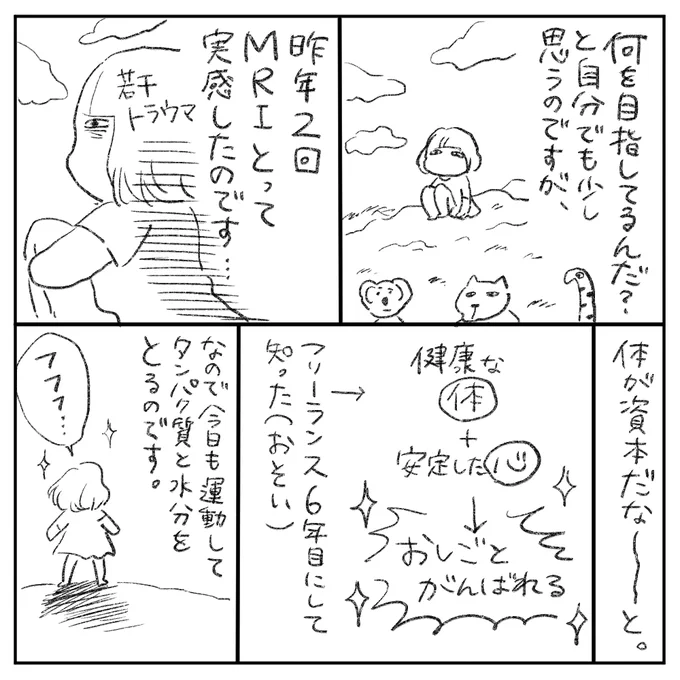 何を目指してるんだ？
と自分でも少し
思うのですが、
昨年2回
MRIとって
実感したのです…
若干
トラウマ
体が資本だな〜〜と。
健康な
体
+
安定した心
↓
おしごと
がんばれる
→
フリーランス6年目にして
知った(おそい)
なので今日も運動して
タンパク質と水分を
とるのです。
フフフ…